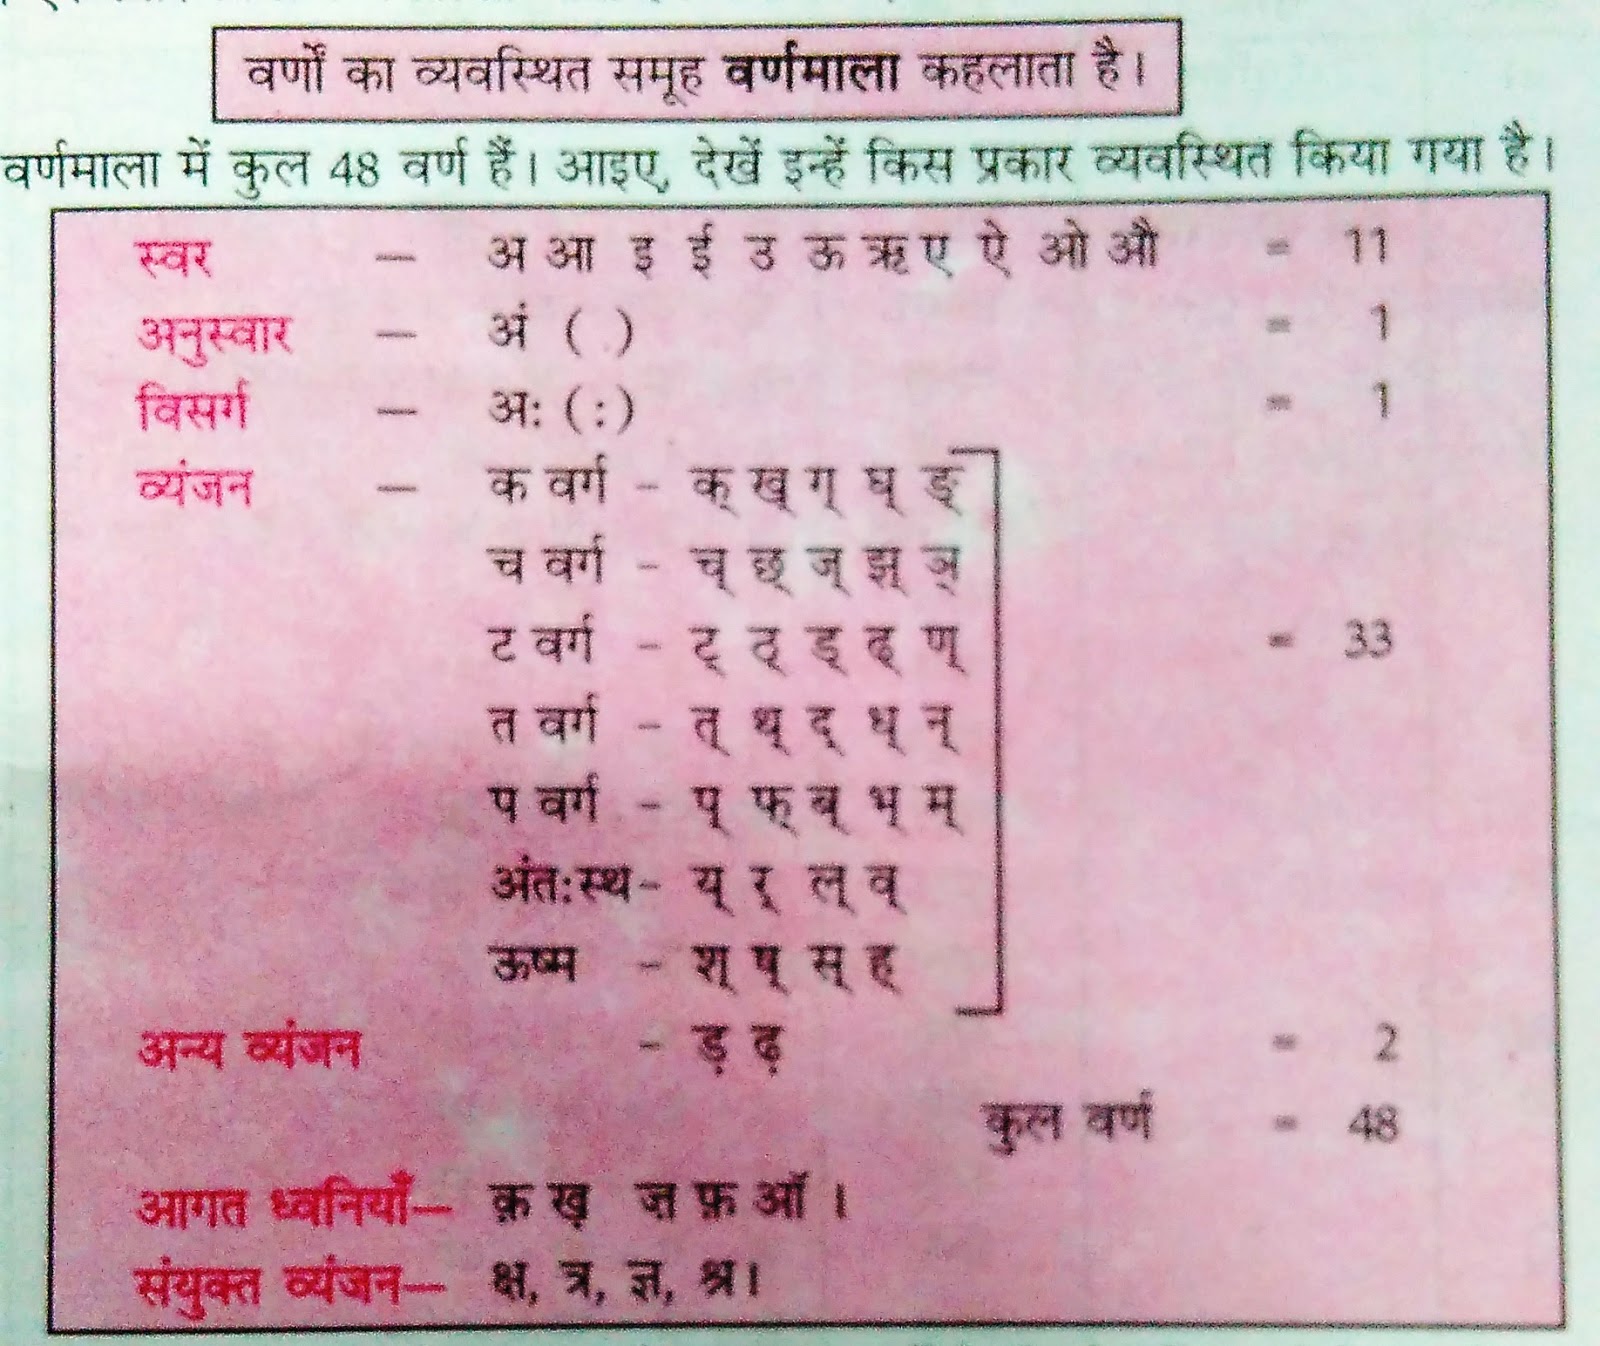 वर्णों का व्यवस्थित समूह वर्णमाला कहलाता है।
वर्णमाला में कुल 48 वर्ण हैं। आइए, देखें इन्हें किस प्रकार व्यवस्थित किया गया है।
स्वर — अ आ इ ई उ ऊ ऋ ए ऐ ओ औ = 11
अनुस्वार — अं ( ) = 1
विसर्ग — अः (:) = 1
व्यंजन — क वर्ग - क् ख् ग् घ् ङ्
च वर्ग - च् छ् ज् झ् ञ्
ट वर्ग - ट् ठ् ड् ढ् ण् = 33
त वर्ग - त् थ् द् ध् न्
प वर्ग - प् फ् ब् भ् म्
अंतःस्थ- य् र् ल् व्
ऊष्म - श् ष् स् ह्
अन्य व्यंजन - ड़ ढ़ = 2
कुल वर्ण = 48
आगत ध्वनियाँ— क़ ख़ ज़ फ़ ऑ ।
संयुक्त व्यंजन— क्ष, त्र, ज्ञ, श्र।